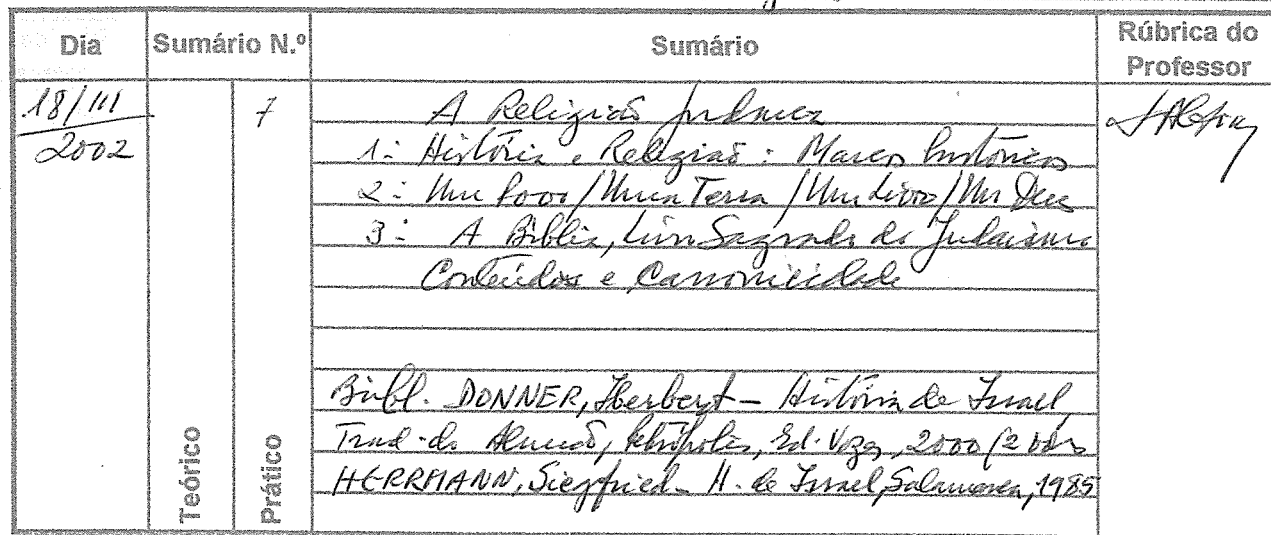 Dia Sumário N.º Sumário Rúbrica do Professor
18/III 2002
7
A Religião Judaica
1: História e Religião: Marcos históricos
2: Um Povo/Uma Terra/Um Livro/Um Deus
3: A Bíblia, Livro Sagrado do Judaísmo
Conteúdos e Canonicidade
Bibl. DONNER, Herbert - História de Israel,
Trad. do Alemão, Petrópolis, Ed. Vozes, 2000 (2 vols
HERRMANN, Siegfried - H. de Israel, Salamanca, 1985
Teórico
Prático